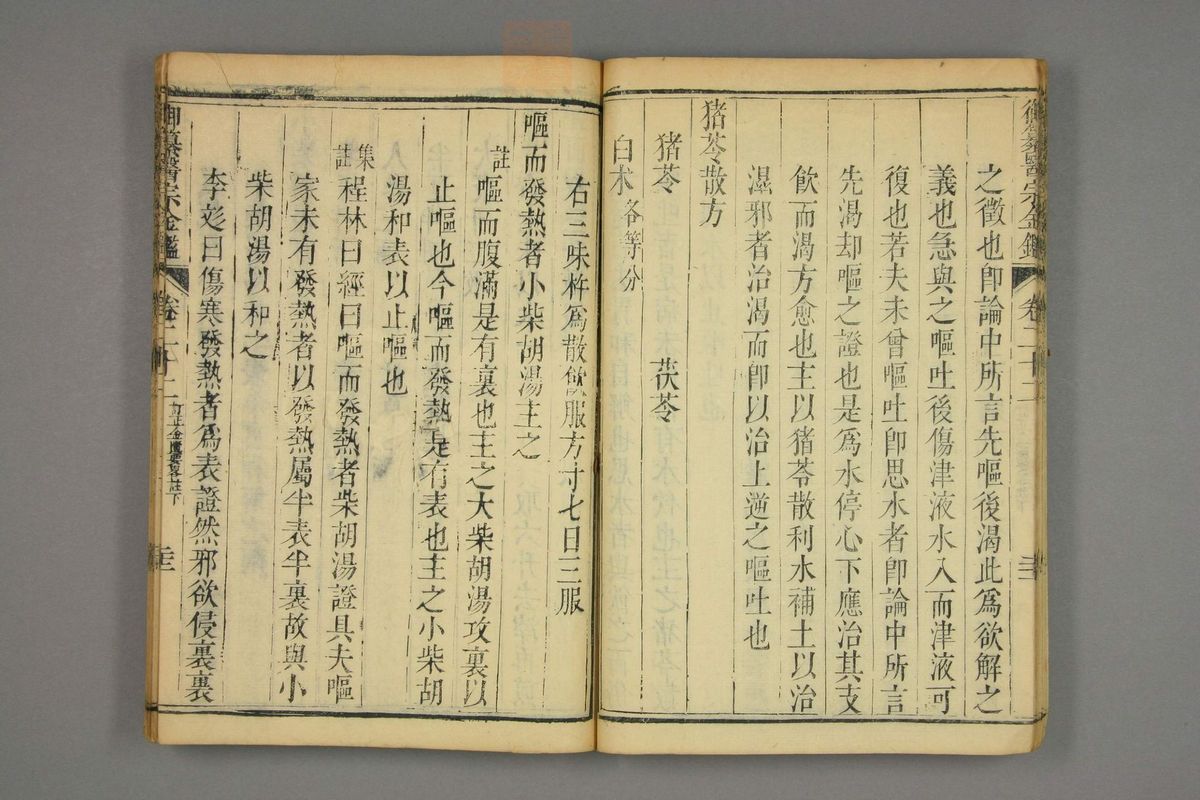 御纂醫宗金鑑 卷二十二
之徵也卽論中所言先嘔後渴此為欲解之
義也急與之嘔吐後傷津液水入而津液可
復也若夫未曾嘔吐卽思水者卽論中所言
先渴却嘔之證也是為水停心下應治其支
飲而渴方愈也主以猪苓散利水補土以治
濕邪者治渴而卽以治上逆之嘔吐也
猪苓散方
猪苓 茯苓
白术各等分
右三味杵為散飲服方寸七日三服
嘔而發熱者小柴胡湯主之
註嘔而腹滿是有裏也主之大柴胡湯攻裏以
止嘔也今嘔而發熱是有表也主之小柴胡
湯和表以止嘔也
集註程林曰經曰嘔而發熱者柴胡湯證具夫嘔
家未有發熱者以發熱屬半表半裏故與小
柴胡湯以和之
李彣曰傷寒發熱者為表證然邪欲侵裏裏
御纂醫宗金鑑 卷二十二 訂正金匱要畧註下